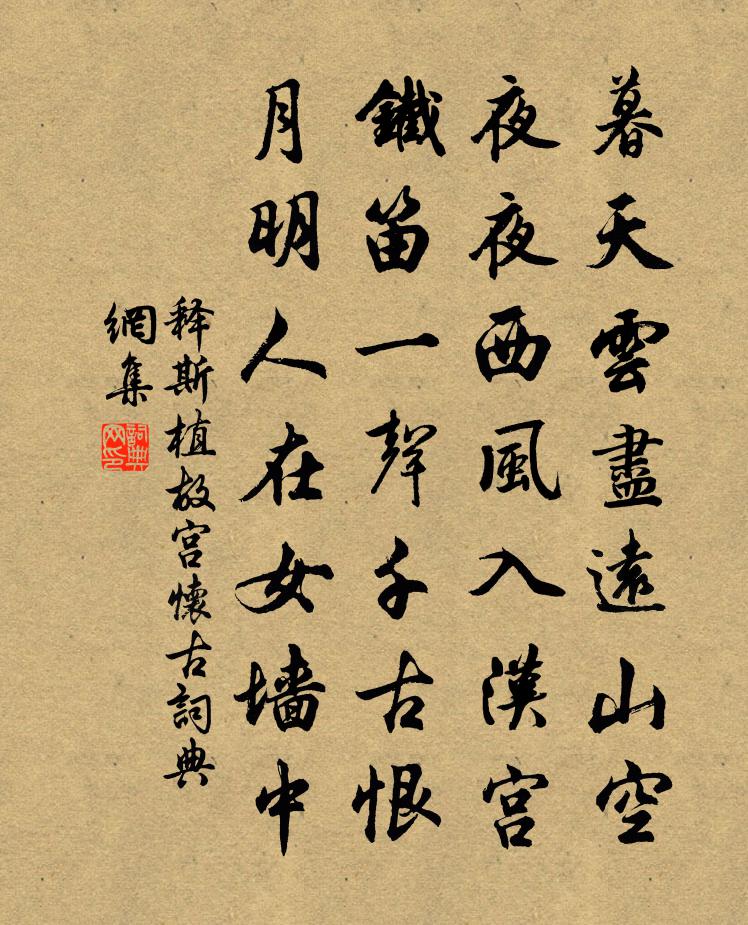 暮天雲盡遠山空
夜夜西風入漢宮
鐵笛一聲千古恨
月明人在女墙中
释斯植故宫懷古詞典
網集
詞典
网印